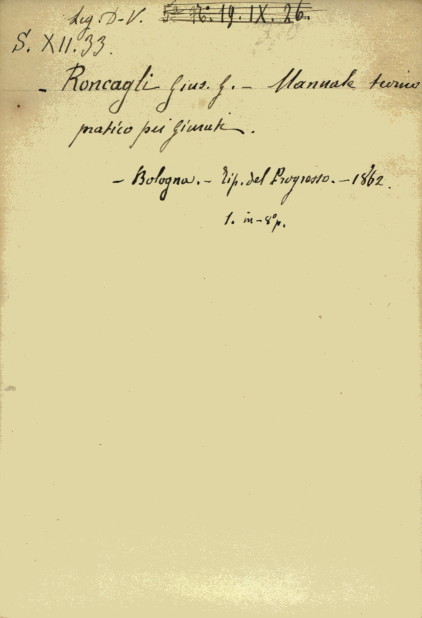 Leg. D-V. 5a N. 19. IX. 26.
S. XII. 33.
- Roncagli Gius. G. - Manuale teorico
pratico pei Giurati.
- Bologna. - Tip. del Progresso. - 1862.
1. in-8º p.